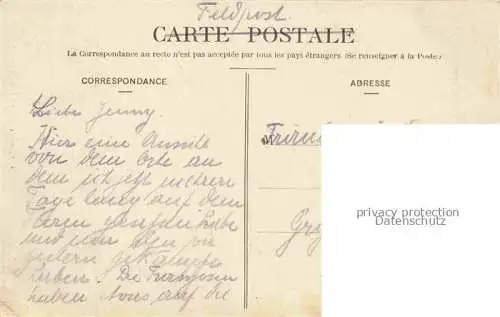 Feldpost.
CARTE POSTALE
La Correspondance au recto n'est pas acceptée par tous les pays étrangers (Se renseigner à la Poste.)
CORRESPONDANCE
ADRESSE
Liebe Jenny.
Hier eine Ansicht
von dem Orte an
dem ich jetzt mehrere
Tage lang auf dem
haben
und um den wir
gestern gekämpft
haben. Die Franzosen
haben uns auf die
privacy protection
Datenschutz